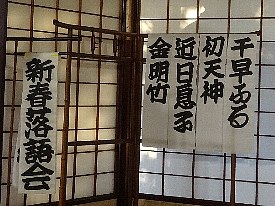 千早ふる
初天神
近日息子
金明竹
新春落語会